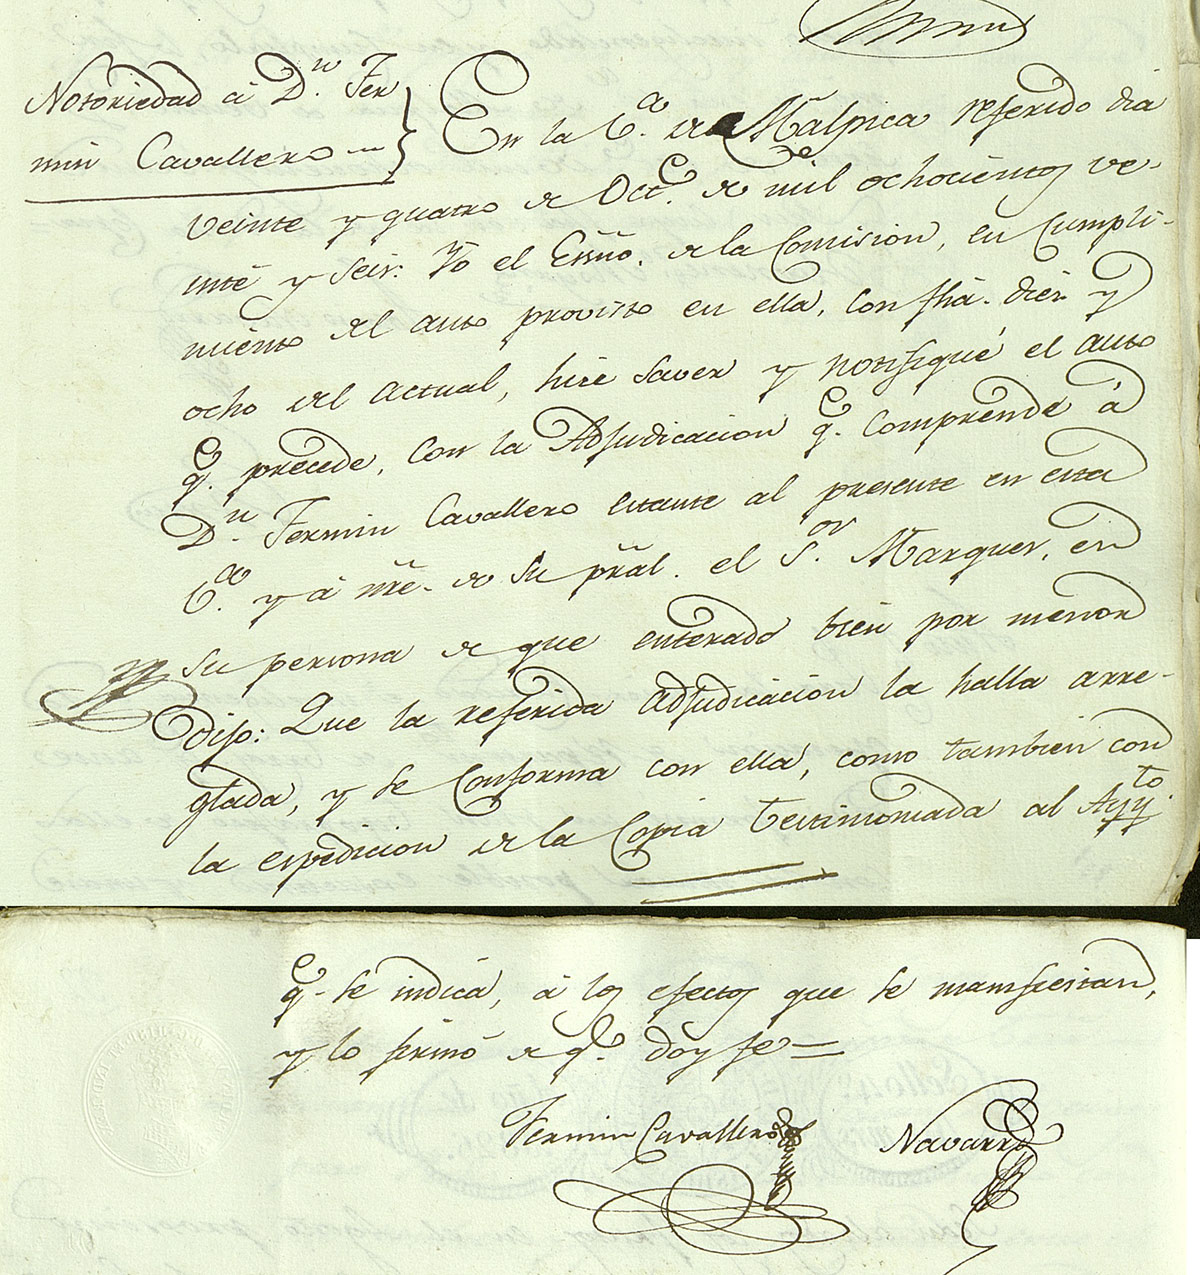 Notoriedad á D.n Fer
min Cavallero
En la V.a de Malpica referido dia
veinte y quatro de Oct.e de mil ochocientos ve-
inte y seis. Yo el Essño. de la Comision, en cumpli-
miento del auto provisto en ella, con fha. diez y
ocho del actual, hice saver y notifiqué el auto
q.e precede, con la Adjudicacion q.e comprende á
D.n Fermin Cavallero estante al presente en esta
V.a y á nre. de su pral. el S.or Marques, en
su persona de que enterado bien por menor
dijo: Que la referida adjudicacion la halla arre-
glada, y se conforma con ella, como tambien con
la espedicion de la Copia testimoniada al Ayy.to
q.e se indica, á los efectos que se manifiestan,
y lo firmó de q.e doy fe=
Fermin Cavallero
Navarro